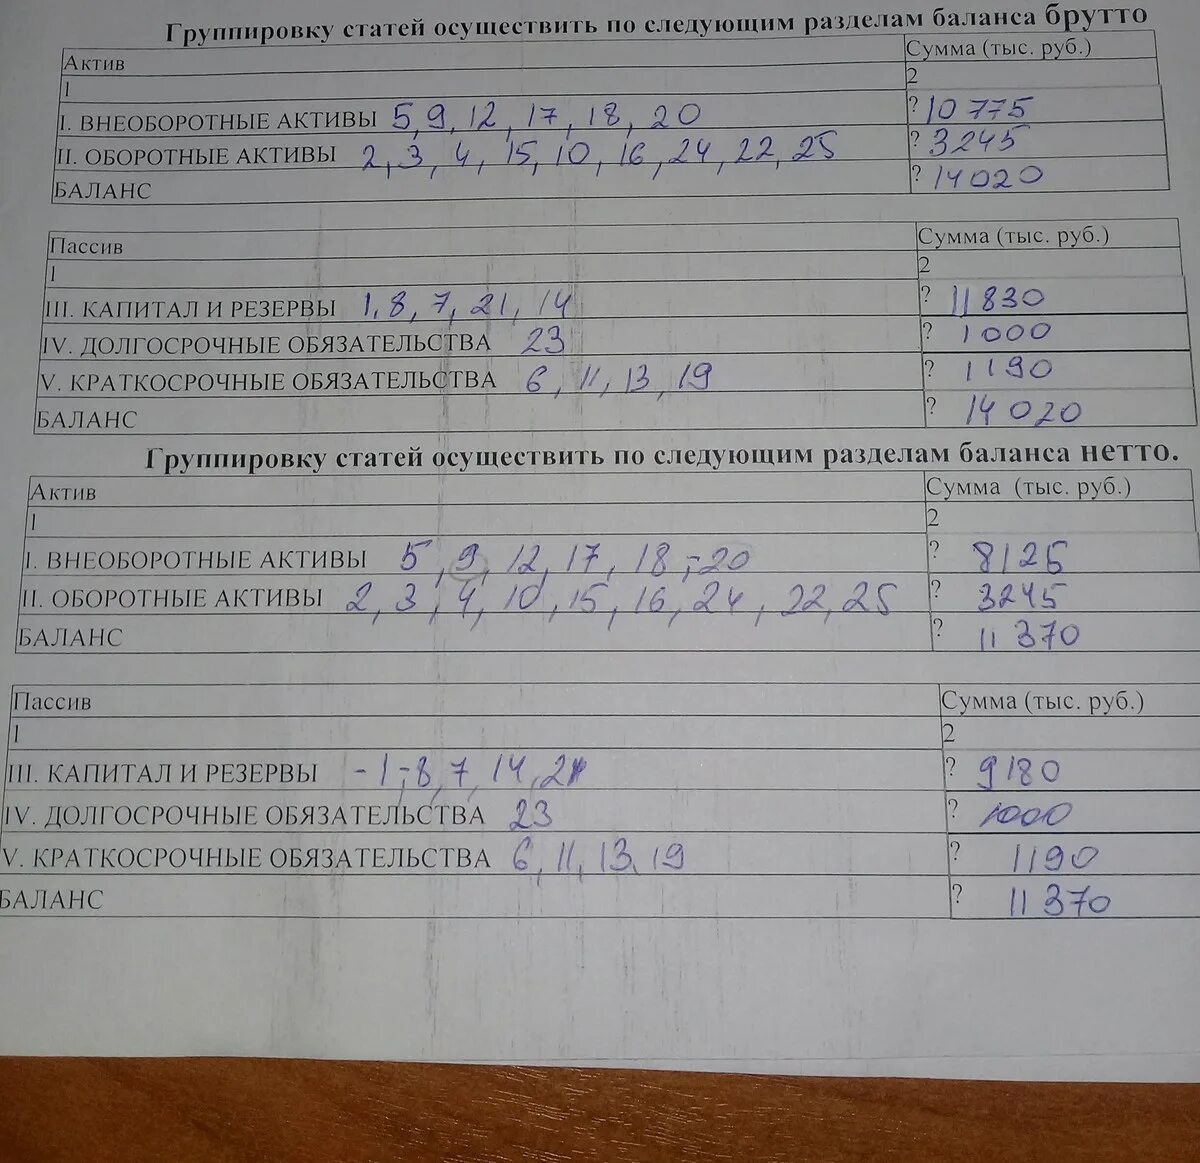 Группировку статей осуществить по следующим разделам баланса брутто
Актив Сумма (тыс. руб.)
1 2
I. ВНЕОБОРОТНЫЕ АКТИВЫ 5, 9, 12, 17, 18, 20 ? 10 775
II. ОБОРОТНЫЕ АКТИВЫ 2, 3, 4, 15, 10, 16, 24, 22, 25 ? 3245
БАЛАНС ? 14020
Пассив Сумма (тыс. руб.)
1 2
III. КАПИТАЛ И РЕЗЕРВЫ 1, 8, 7, 21, 14 ? 11 830
IV. ДОЛГОСРОЧНЫЕ ОБЯЗАТЕЛЬСТВА 23 ? 1000
V. КРАТКОСРОЧНЫЕ ОБЯЗАТЕЛЬСТВА 6, 11, 13, 19 ? 1190
БАЛАНС ? 14 020
Группировку статей осуществить по следующим разделам баланса нетто.
Актив Сумма (тыс. руб.)
1 2
I. ВНЕОБОРОТНЫЕ АКТИВЫ 5, 9, 12, 17, 18, -20 ? 8125
II. ОБОРОТНЫЕ АКТИВЫ 2, 3, 4, 10, 15, 16, 24, 22, 25 ? 3245
БАЛАНС ? 11 370
Пассив Сумма (тыс. руб.)
1 2
III. КАПИТАЛ И РЕЗЕРВЫ -1, -8, 7, 14, 21 ? 9180
IV. ДОЛГОСРОЧНЫЕ ОБЯЗАТЕЛЬСТВА 23 ? 1000
V. КРАТКОСРОЧНЫЕ ОБЯЗАТЕЛЬСТВА 6, 11, 13, 19 ? 1190
БАЛАНС ? 11 370